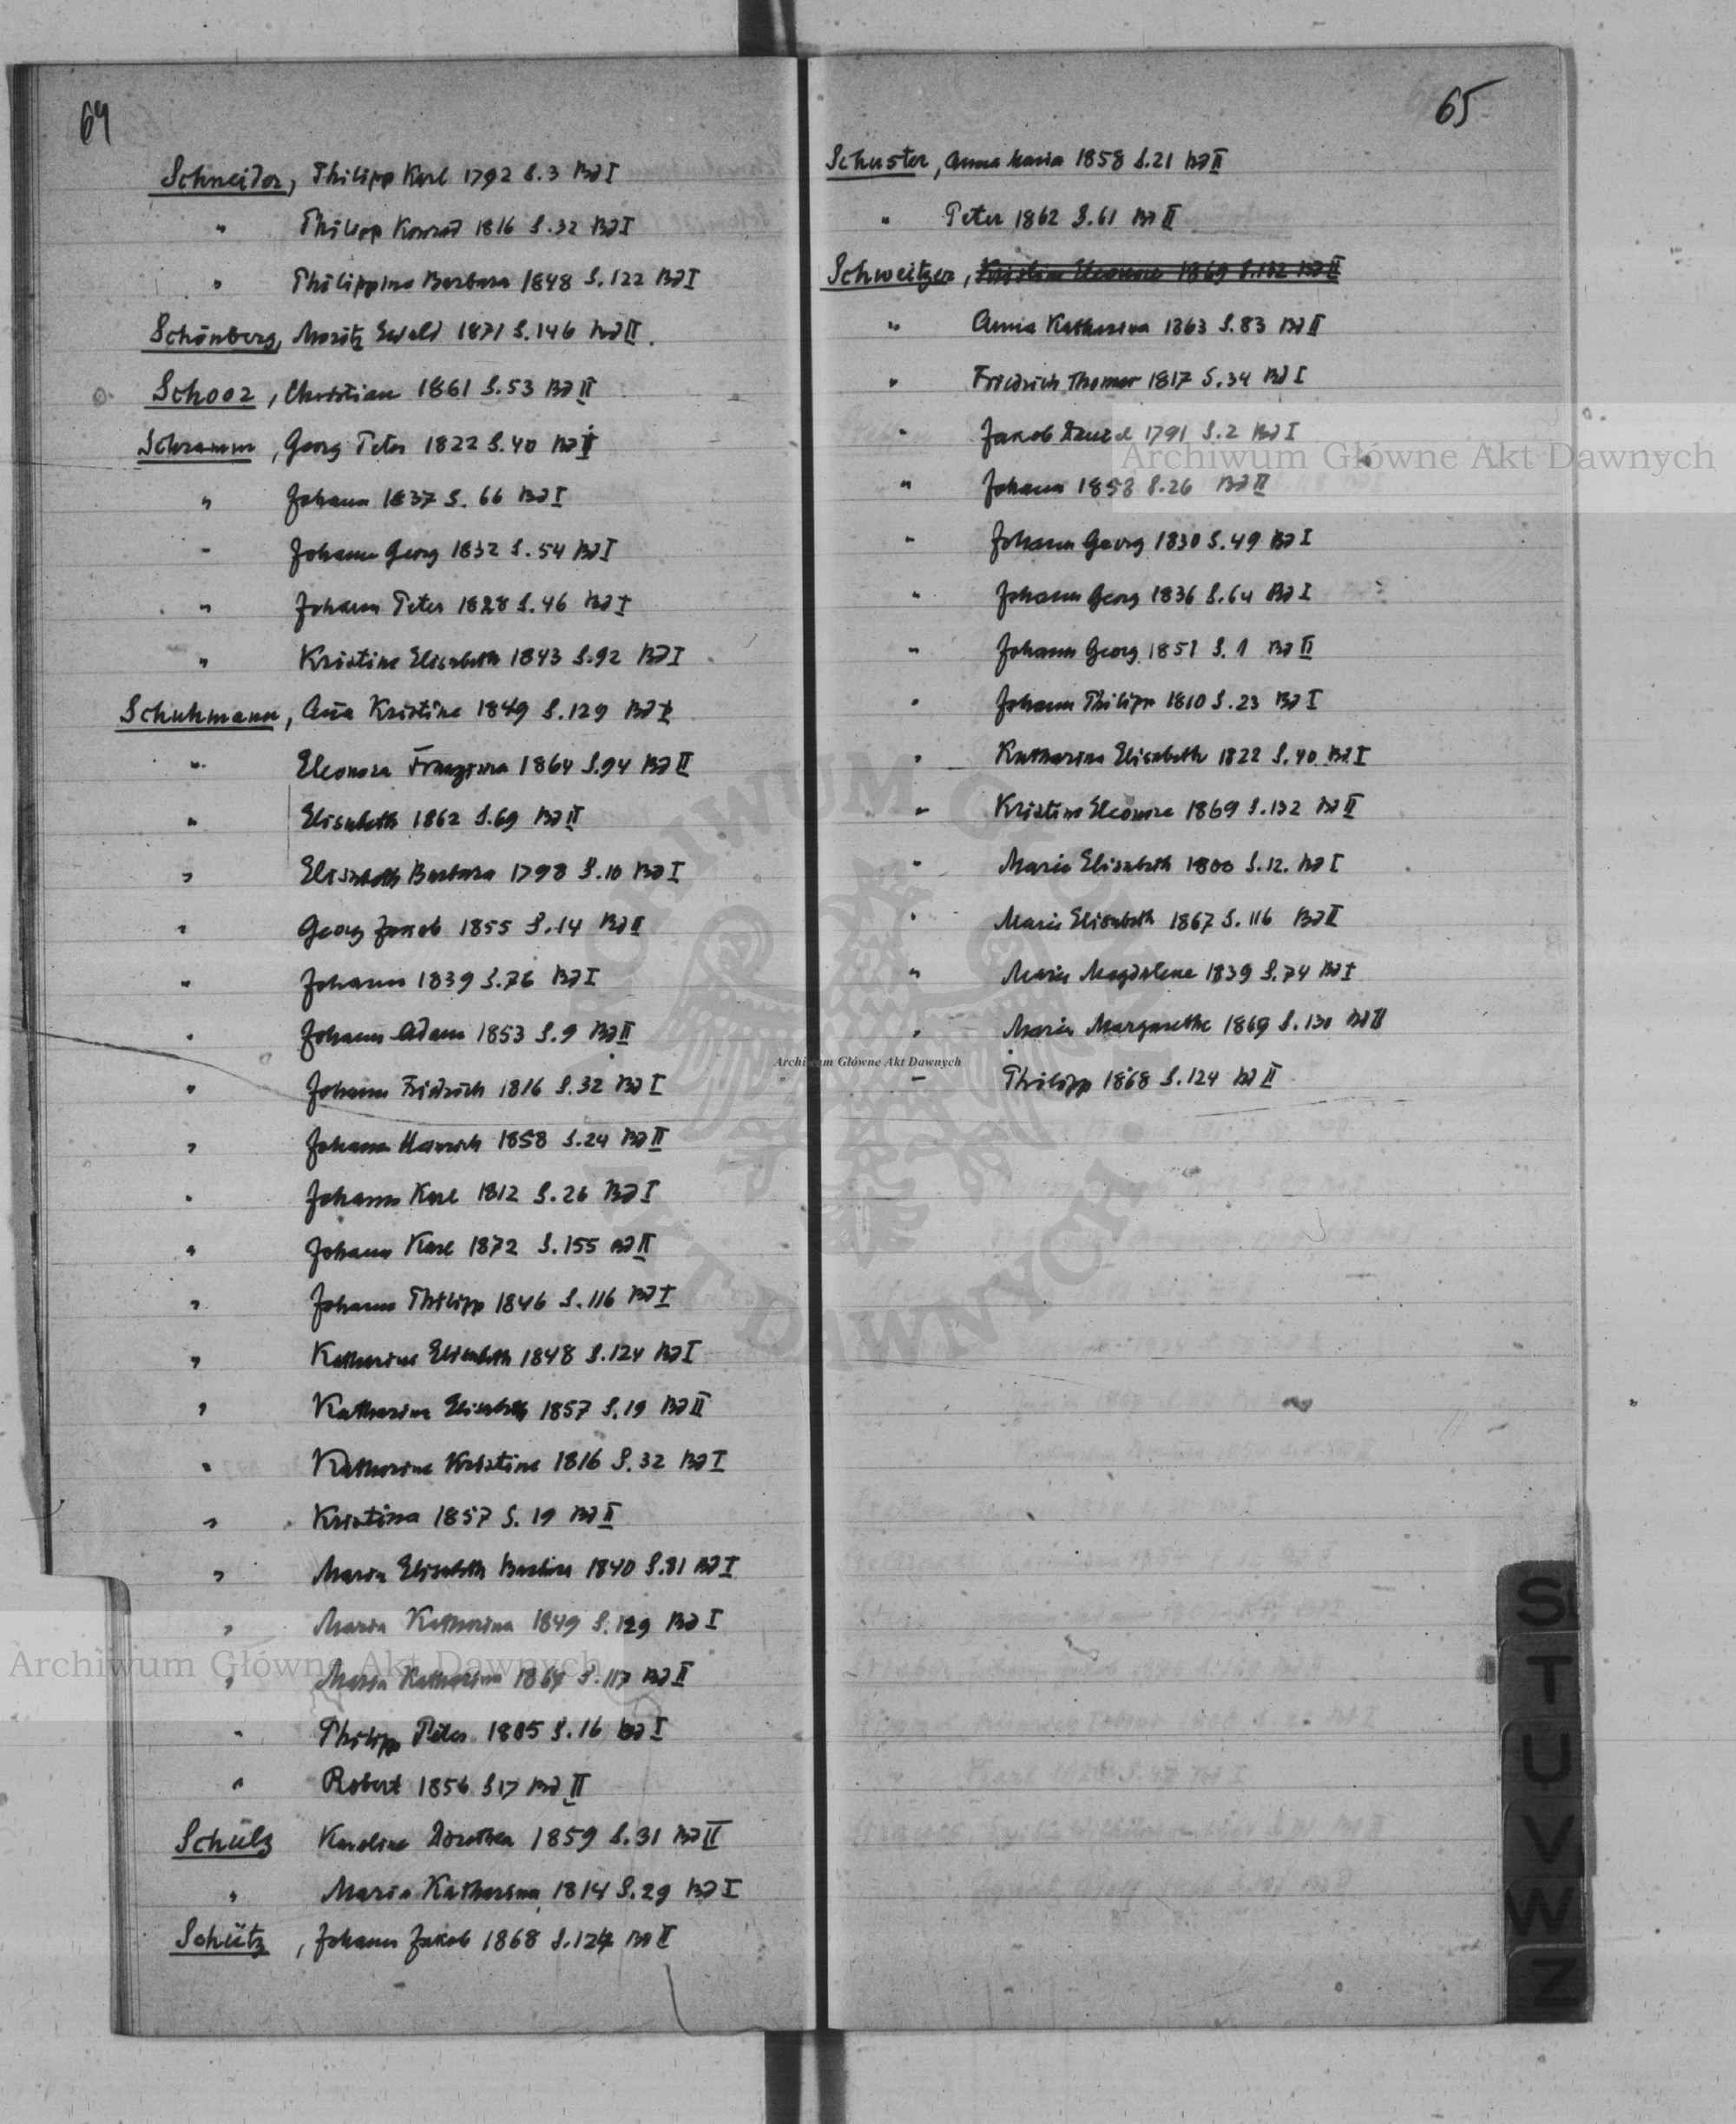 64
Schneider, Philipp Karl 1792 S.3 Bd I
" Philipp Konrad 1816 S.32 Bd I
" Philippina Barbara 1848 S.122 Bd I
Schönberg, Moritz Ewald 1871 S.146 Bd II.
Schooz, Christian 1861 S.53 Bd II
Schramm, Georg Peter 1822 S.40 Bd
" Johann 1837 S. 66 Bd I
" Johann Georg 1832 S.54 Bd I
" Johann Peter 1828 S.46 Bd I
" Kristine Elisabeth 1843 S.92 Bd I
Schuhmann, Aña Kristine 1849 S.129 Bd I
" Eleonora 1864 S.94 Bd II
" Elisabeth 1862 S.69 Bd II
" Elisabeth Barbara 1798 S.10 Bd I
" Georg Jakob 1855 S.14 Bd II
" Johann 1839 S.76 Bd I
" Johann Adam 1853 S.9 Bd II
" Johann Fridrich 1816 S.32 Bd I
" Johann Heinrich 1858 S.24 Bd II
" Johann Karl 1812 S.26 Bd I
" Johann Karl 1872 S.155 Bd II
" Johann Philipp 1846 S.116 Bd I
" Katharina Elisabeth 1848 S.124 Bd I
" Katharina Elisabeth 1857 S.19 Bd II
" Katharina Kristine 1816 S.32 Bd I
" Kristina 1857 S.19 Bd II
" Maria Elisabeth 1840 S.81 Bd I
" Maria Katharina 1849 S.129 Bd I
" Maria Katharina S.117 Bd II
" Philipp Peter 1805 S.16 Bd I
" Robert 1856 S17 Bd II
Schülz Karoline Dorothea 1859 S.31 Bd II
" Maria Katharina 1814 S.29 Bd I
Schütz, Johann Jakob 1868 S.124 Bd II
65
Schuster, Anna Maria 1858 S.21 Bd II
" Peter 1862 S.61 Bd II
Schweitzer, Kristine Eleonore 1869 S.132 Bd II
" Anna Katharina 1863 S.83 Bd II
" Friedrich Thomas 1817 S.34 Bd I
" Jakob 1791 S.2 Bd I
" Johann 1858 S.26 Bd II
" Johann Georg 1830 S.49 Bd I
" Johann Georg 1836 S.64 Bd I
" Johann Georg 1851 S.1 Bd II
" Johann Philipp 1810 S.23 Bd I
" Katharina Elisabeth 1822 S.40 Bd I
" Kristine Eleonore 1869 S.132 Bd II
" Maria Elisabeth 1800 S.12. Bd I
" Maria Elisabeth 1867 S.116 Bd II
" Maria Magdalene 1839 S.74 Bd I
" Maria Margarethe 1869 S.130 Bd II
" Philipp 1868 S.124 Bd II
S
T
U
V
W
Z
Archiwum Główne Akt Dawnych
Archiwum Główne Akt Dawnych
Archiwum Główne Akt Dawnych